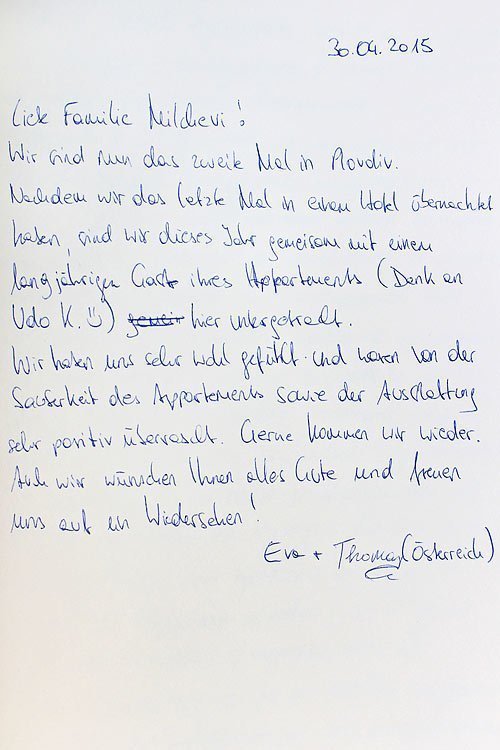 30.04.2015
Liebe Familie Milchevi!
Wir sind nun das zweite Mal in Plovdiv.
Nachdem wir das letzte Mal in einem Hotel übernachtet
haben, sind wir dieses Jahr gemeinsam mit einem
langjährigen Gast ihres Appartements (Dank an
Udo K. ☺) hier untergebracht.
Wir haben uns sehr wohl gefühlt und waren von der
Sauberkeit des Appartements sowie der Ausstattung
sehr positiv überrascht. Gerne kommen wir wieder.
Auch wir wünschen Ihnen alles Gute und freuen
uns auf ein Wiedersehen!
Eva + Thomas (Österreich)